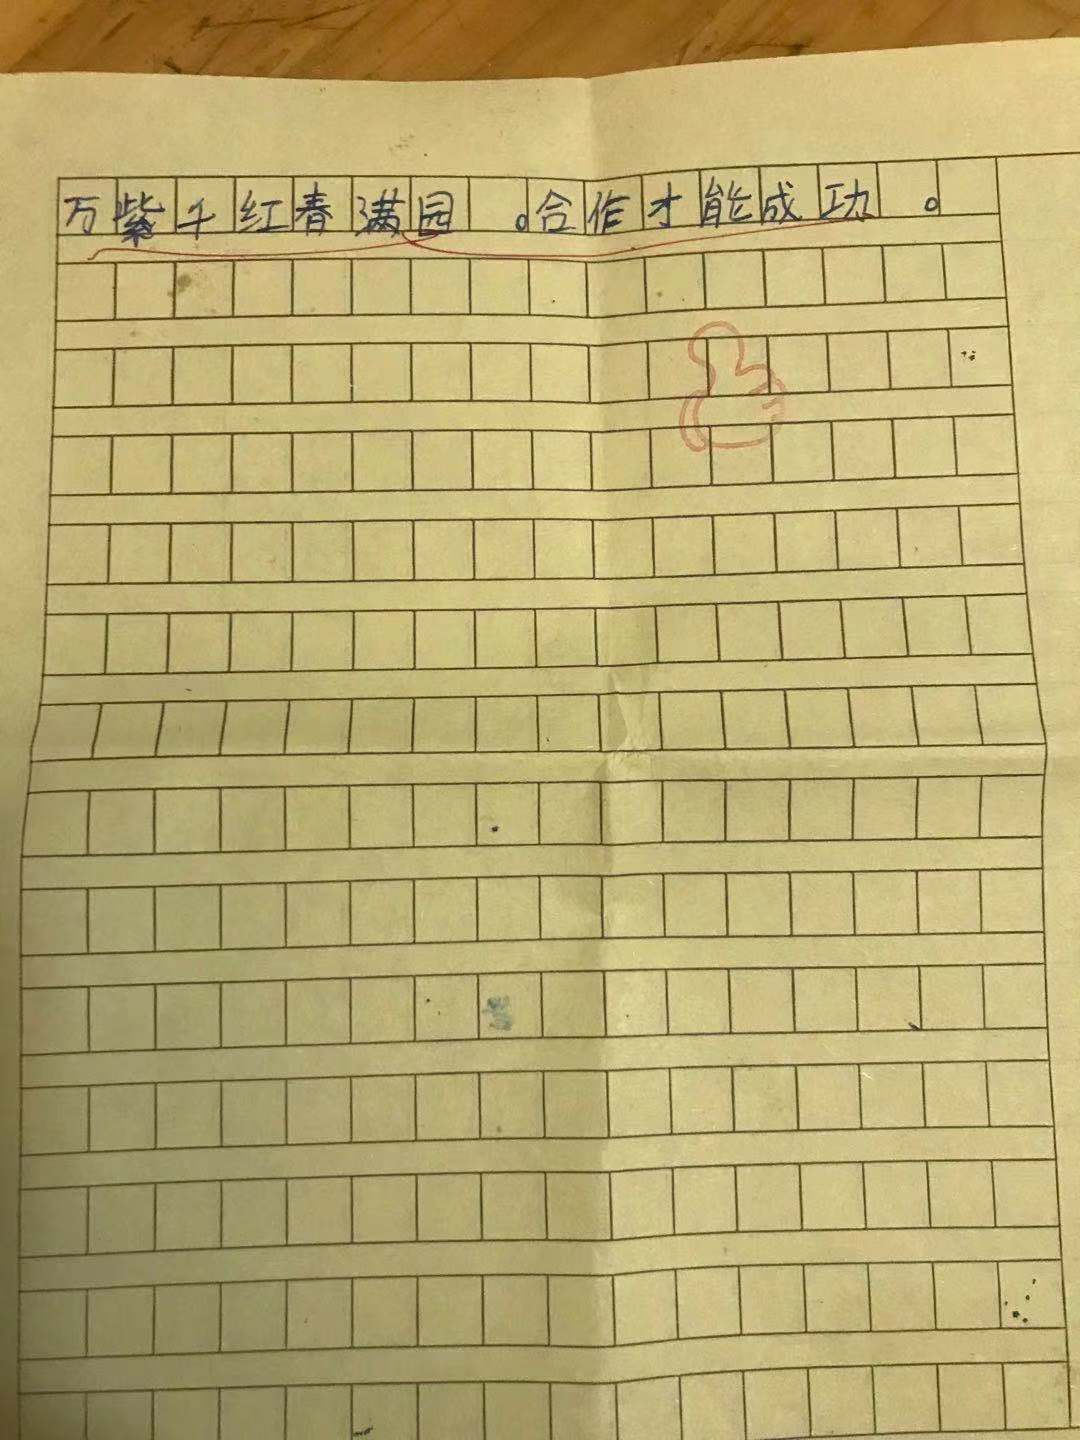 万紫千红春满园。合作才能成功。